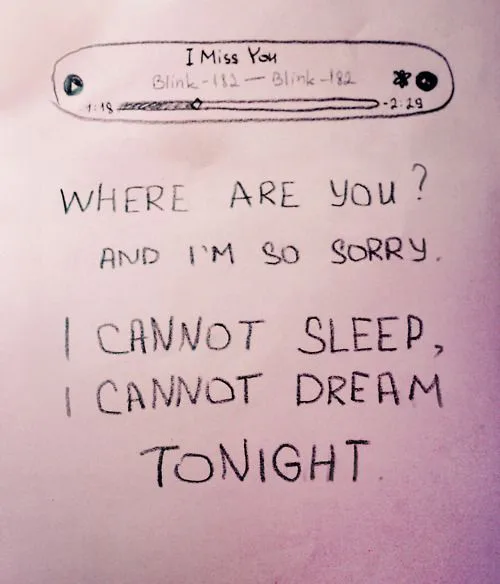 I Miss You
Blink-182 — Blink-182
1:18 -2:29
WHERE ARE YOU?
AND I'M SO SORRY.
I CANNOT SLEEP,
I CANNOT DREAM
TONIGHT.